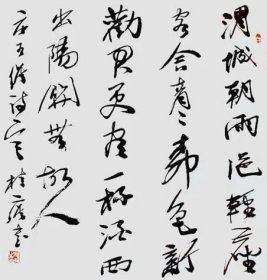 渭城朝雨浥輕塵
客舍青々柳色新
勸君更盡一杯酒西
出陽關無故人
維詩